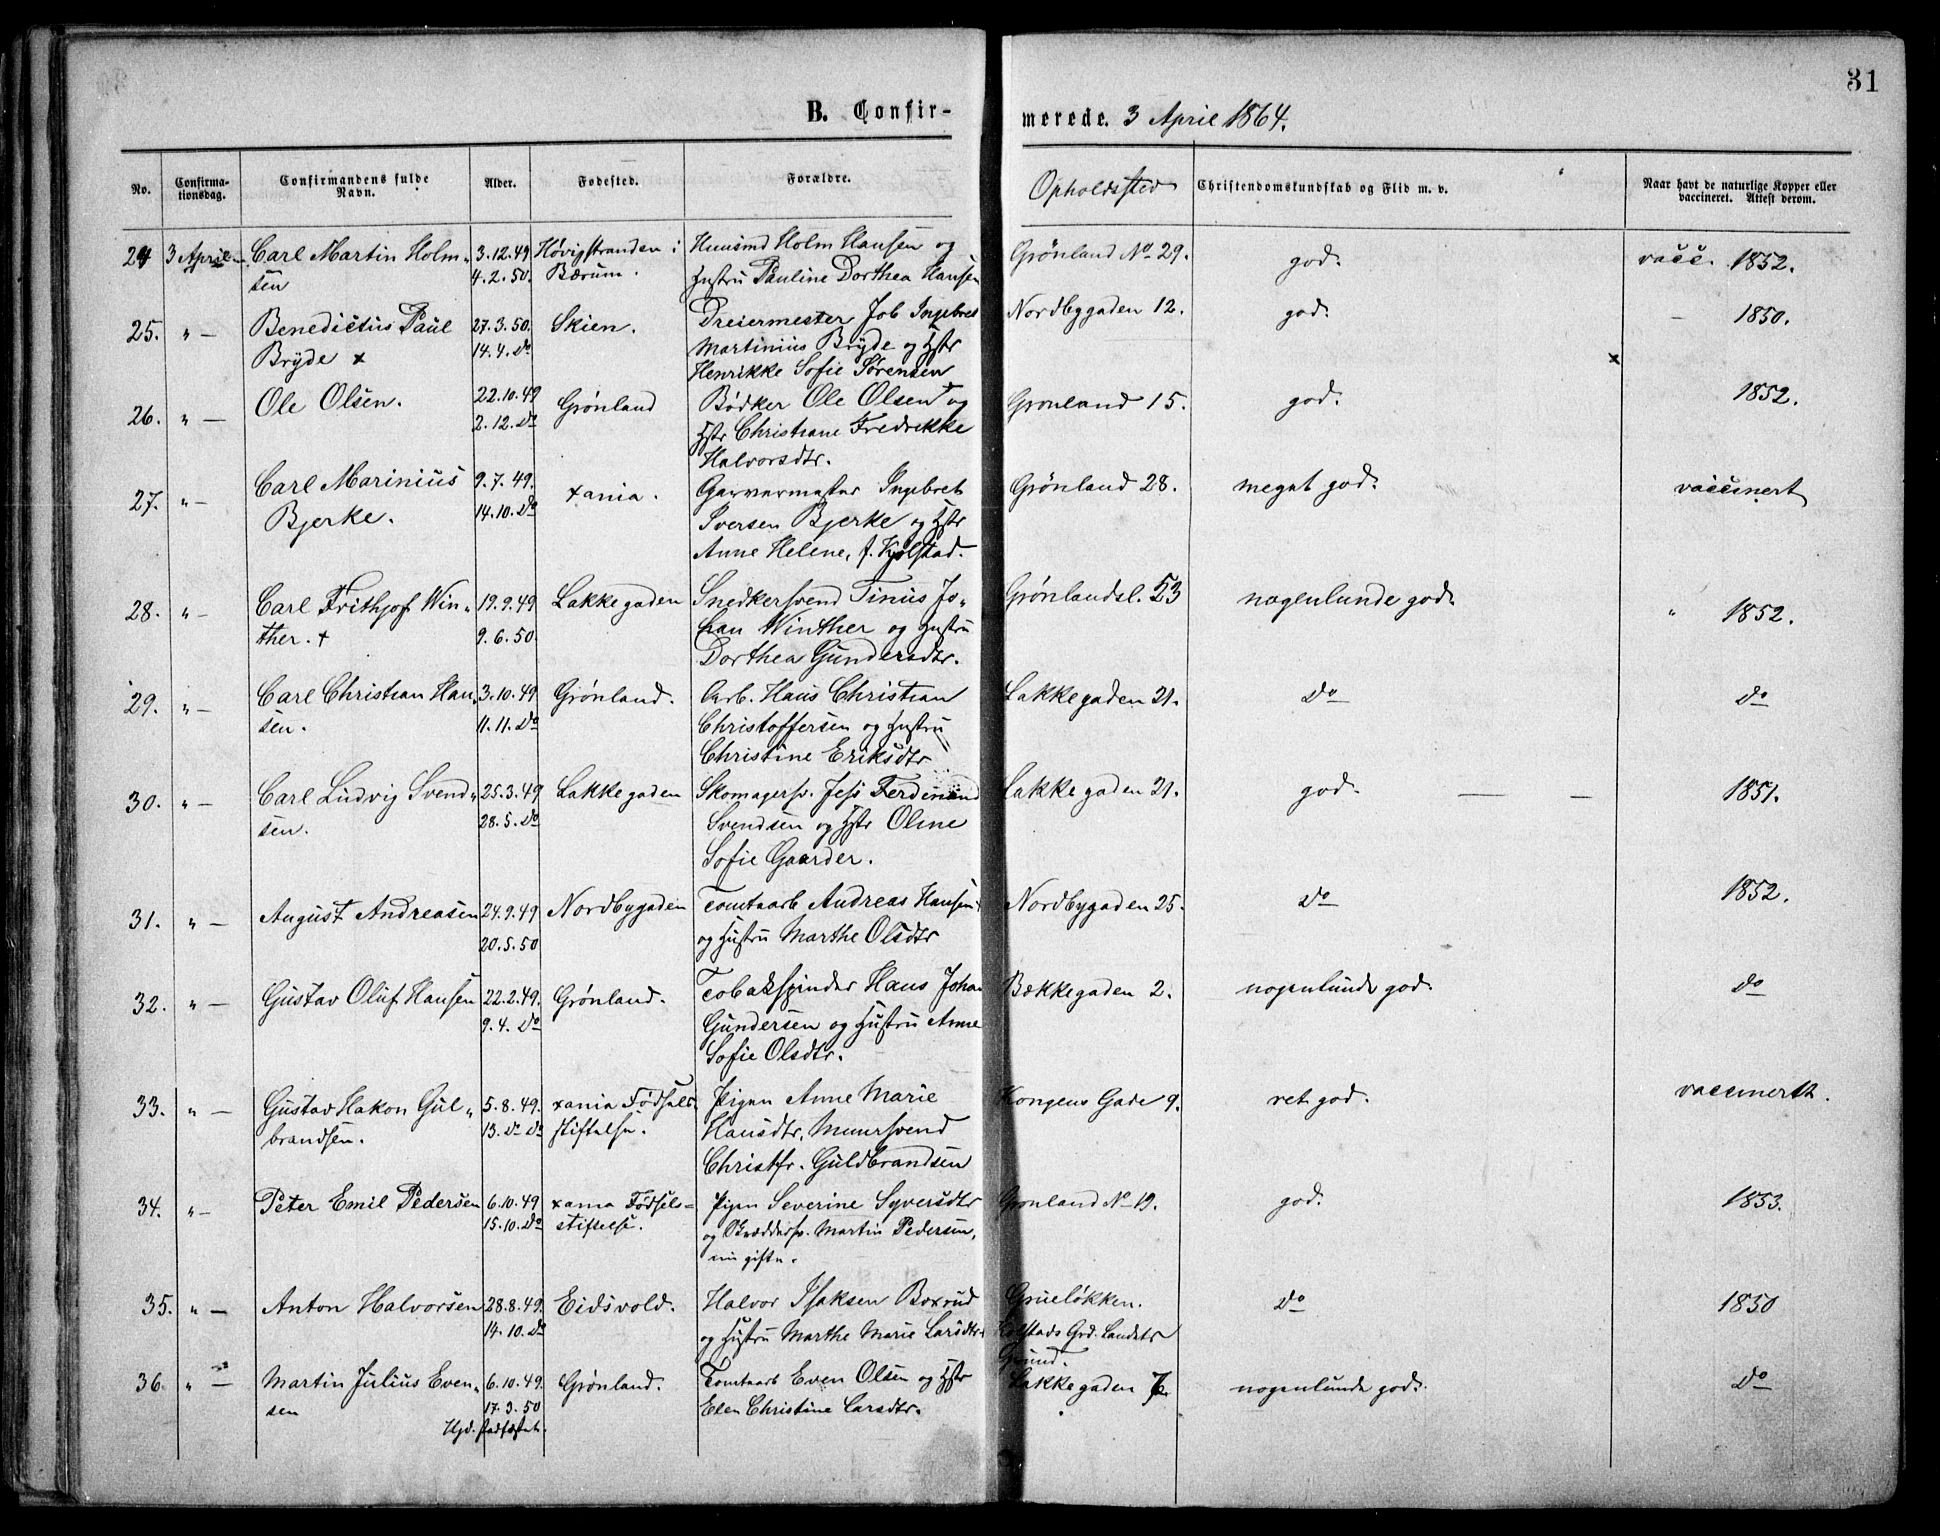 31
B. Confirmerede. 3 April 1864.
No. Confirmationsdag. Confirmandens fulde Navn. Alder. Fødested. Forældre. Opholdssted Christendomskundskab og Flid m. v. Naar havt de naturlige Kopper eller vaccineret. Attest derom.
24 3 April Carl Martin Holm- 3.12.49 Høvigstranden i Huusmd Holm Hansen og Grønland No 29. god. vacc. 1852.
sen 4.2.50. Bærum. Hustru Pauline Dorthea Hansen
25. " — Benedictus Paul 27.3.50. Skien. Dreiermester Job Ingebret Nordbygaden 12. god. — 1850.
Bryde x 14.4. do Martinius Bryde og Hstr x
Henrikke Sofie Sørensen
26. " — Ole Olsen. 22.10.49 Grønland Bødker Ole Olsen og Grønland 15. god. 1852.
2.12. do Hstr Christiane Fredrikke
Halvorsdtr.
27. " — Carl Marinius 9.7.49. xania. Garvermester Ingebret Grønland 28. meget god. vaccinert
Bjerke. 14.10. do Iversen Bjerke og Hstr
Anne Helene, f. Kjølstad.
28. " — Carl Frithjof Win- 19.9.49 Lakkegaden Snedkersvend Tinius Jo- Grønlandsl. 53 nogenlunde god. " 1852.
ther. + 9.6.50. han Winther og Hustru
Dorthea Gundersdtr.
29. " — Carl Christian Han- 3.10.49 Grønland. Arb. Hans Christian Lakkegaden 21. do do
sen. 11.11. do Christoffersen og Hustru
Christine Eriksdtr
30. " — Carl Ludvig Svend- 25.3.49 Lakkegaden Skomagersv. Jess Ferdinand Lakkegaden 21. god. — — 1851.
sen. 28.5. do Svendsen og Hstr Oline
Sofie Gaarder.
31. " — August Andreasen 24.9.49 Nordbygaden Tomtearb Andreas Hansen Nordbygaden 25. do 1852.
20.5.50 og Hustru Marthe Olsdtr
32. " — Gustav Oluf Hansen 22.2.49. Grønland. Tobakspinder Hans Johan Bækkegaden 2. nogenlunde god. do
9.4. do Gundersen og Hustru Anne
Sofie Olsdtr.
33. " — Gustav Hakon Gul- 5.8.49. xania Fødsels- Pigen Anne Marie Kongens Gade 9. ret god. vaccinert
brandsen. 13. do do stiftelse. Hansdtr, Muursvend
Christfr. Guldbrandsen
34. " — Peter Emil Pedersen 6.10.49 xania Fødsels- Pigen Severine Syversdtr Grønland No 19. god. 1853.
15.10. do stiftelse. og Martin Pedersen,
nu gifte.
35. " — Anton Halvorsen 28.8.49. Eidsvold. Halvor Isaksen Boxrud Grueløkken. do 1850
14.10. do og Hustru Marthe Marie Larsdtr. Kolstads Grd. Landstr
Grund.
36. " — Martin Julius Even- 6.10.49 Grønland. Tomtearb Even Olsen og Hstr Lakkegaden 7 nogenlunde god. do
sen 17.3.50 Elen Christine Larsdtr.
Hjd. stadfæstet.